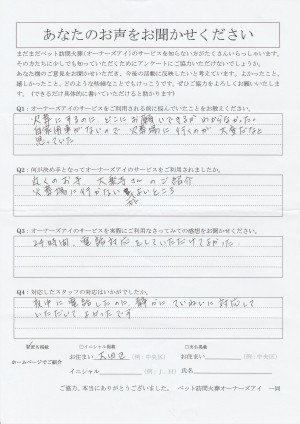 あなたのお声をお聞かせください
まだまだペット訪問火葬(オーナーズアイ)のサービスを知らない方がたくさんいらっしゃいます。
その方たちに少しでも知っていただくためにアンケートにご協力いただけないでしょうか。
あなた様のご意見をお聞かせいただき、今後の活動に反映したいと考えています。よかったこと、
嬉しかったこと、どのような些細なことでもけっこうです。ぜひご協力をよろしくお願いいたします。
(できるだけ具体的に書いていただけると助かります)
Q1:オーナーズアイのサービスをご利用される前に悩んでいたことをお教えください。
火葬にするのに、どこにお願いできるかわからなかった。
自家用車がないので火葬場に行くのが大変だなと
思っていた
Q2:何が決め手となってオーナーズアイのサービスをご利用されましたか。
近くのお寺、大聖寺さんのご紹介
火葬場に行かない よいところ
Q3:オーナーズアイのサービスを実際にご利用なさってみての感想をお聞かせください。
24時間、電話対応をしていただけてよかった。
Q4:対応したスタッフの対応はいかがでしたか。
夜中に電話したのに、静かにていねいに対応して
いただいてよかったです
□イニシャル掲載 □実名掲載
ホームページでご紹介
お住まい 大田区 (例:中央区) お住まい (例:中央区)
イニシャル (例:J. H) 氏名
ご協力、本当にありがとうございました。 ペット訪問火葬オーナーズアイ 一同